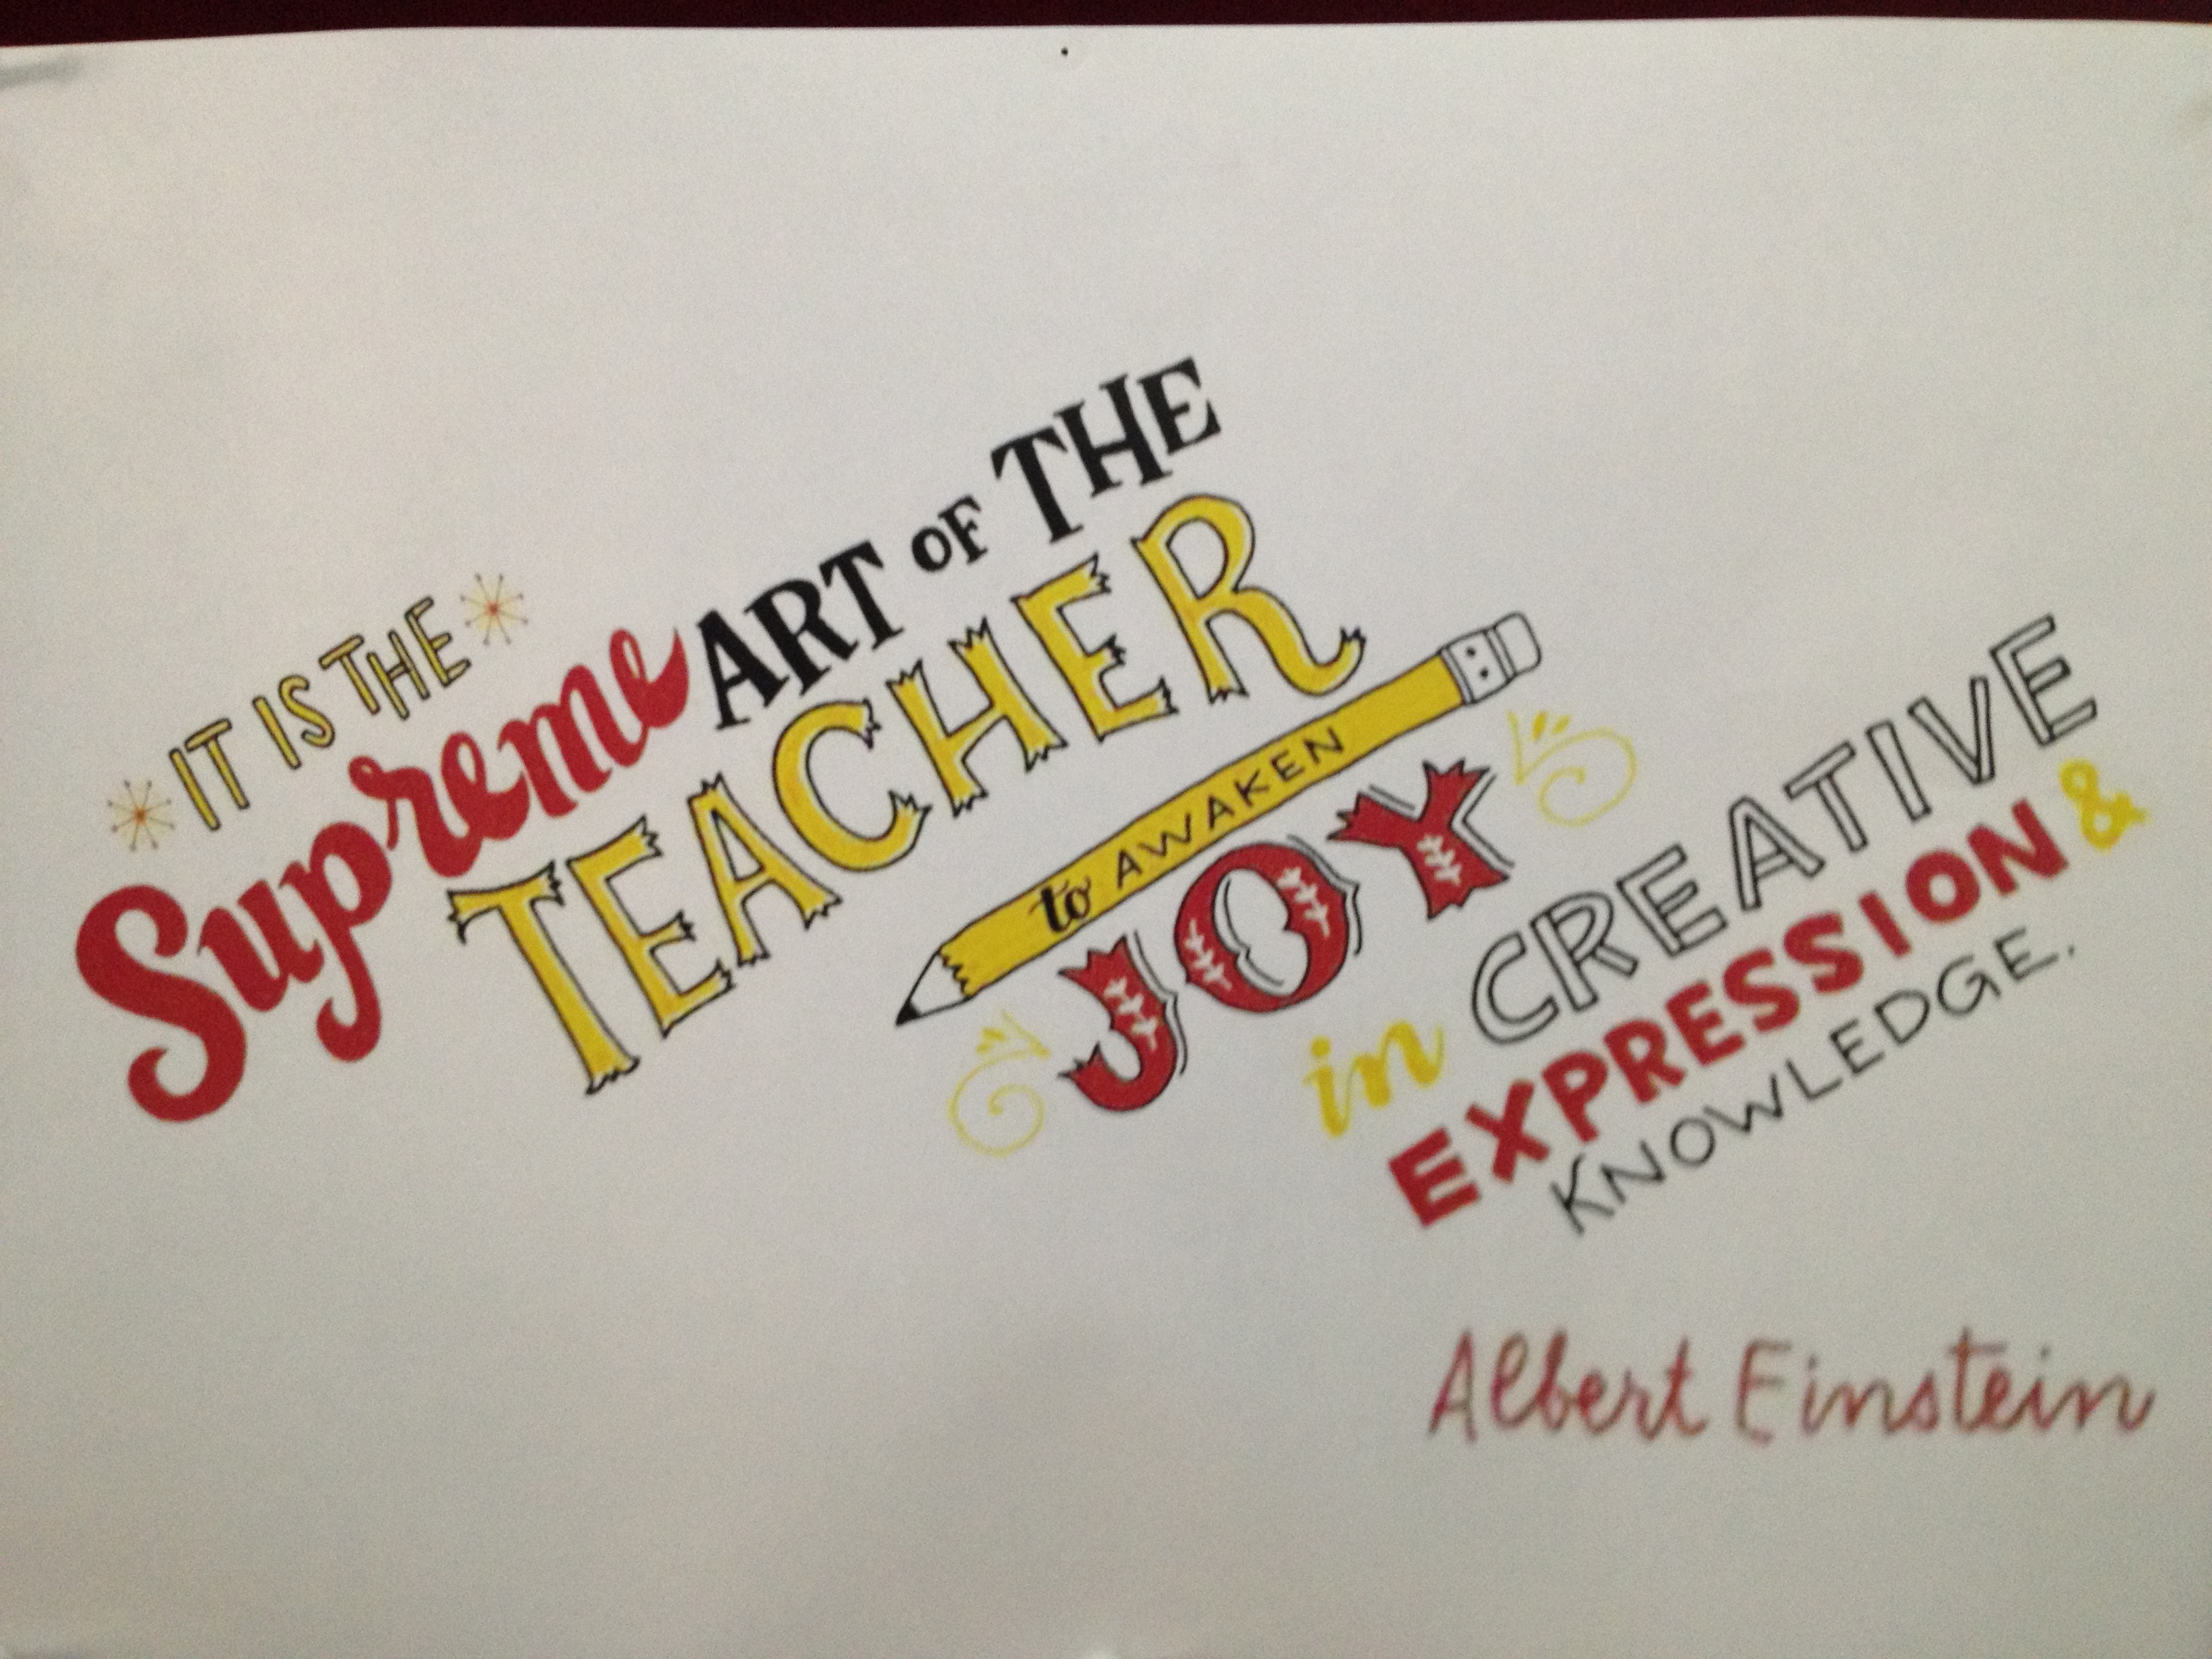 IT IS THE
Supreme ART OF THE
TEACHER
to AWAKEN
JOY
in CREATIVE
EXPRESSION &
KNOWLEDGE.
Albert Einstein